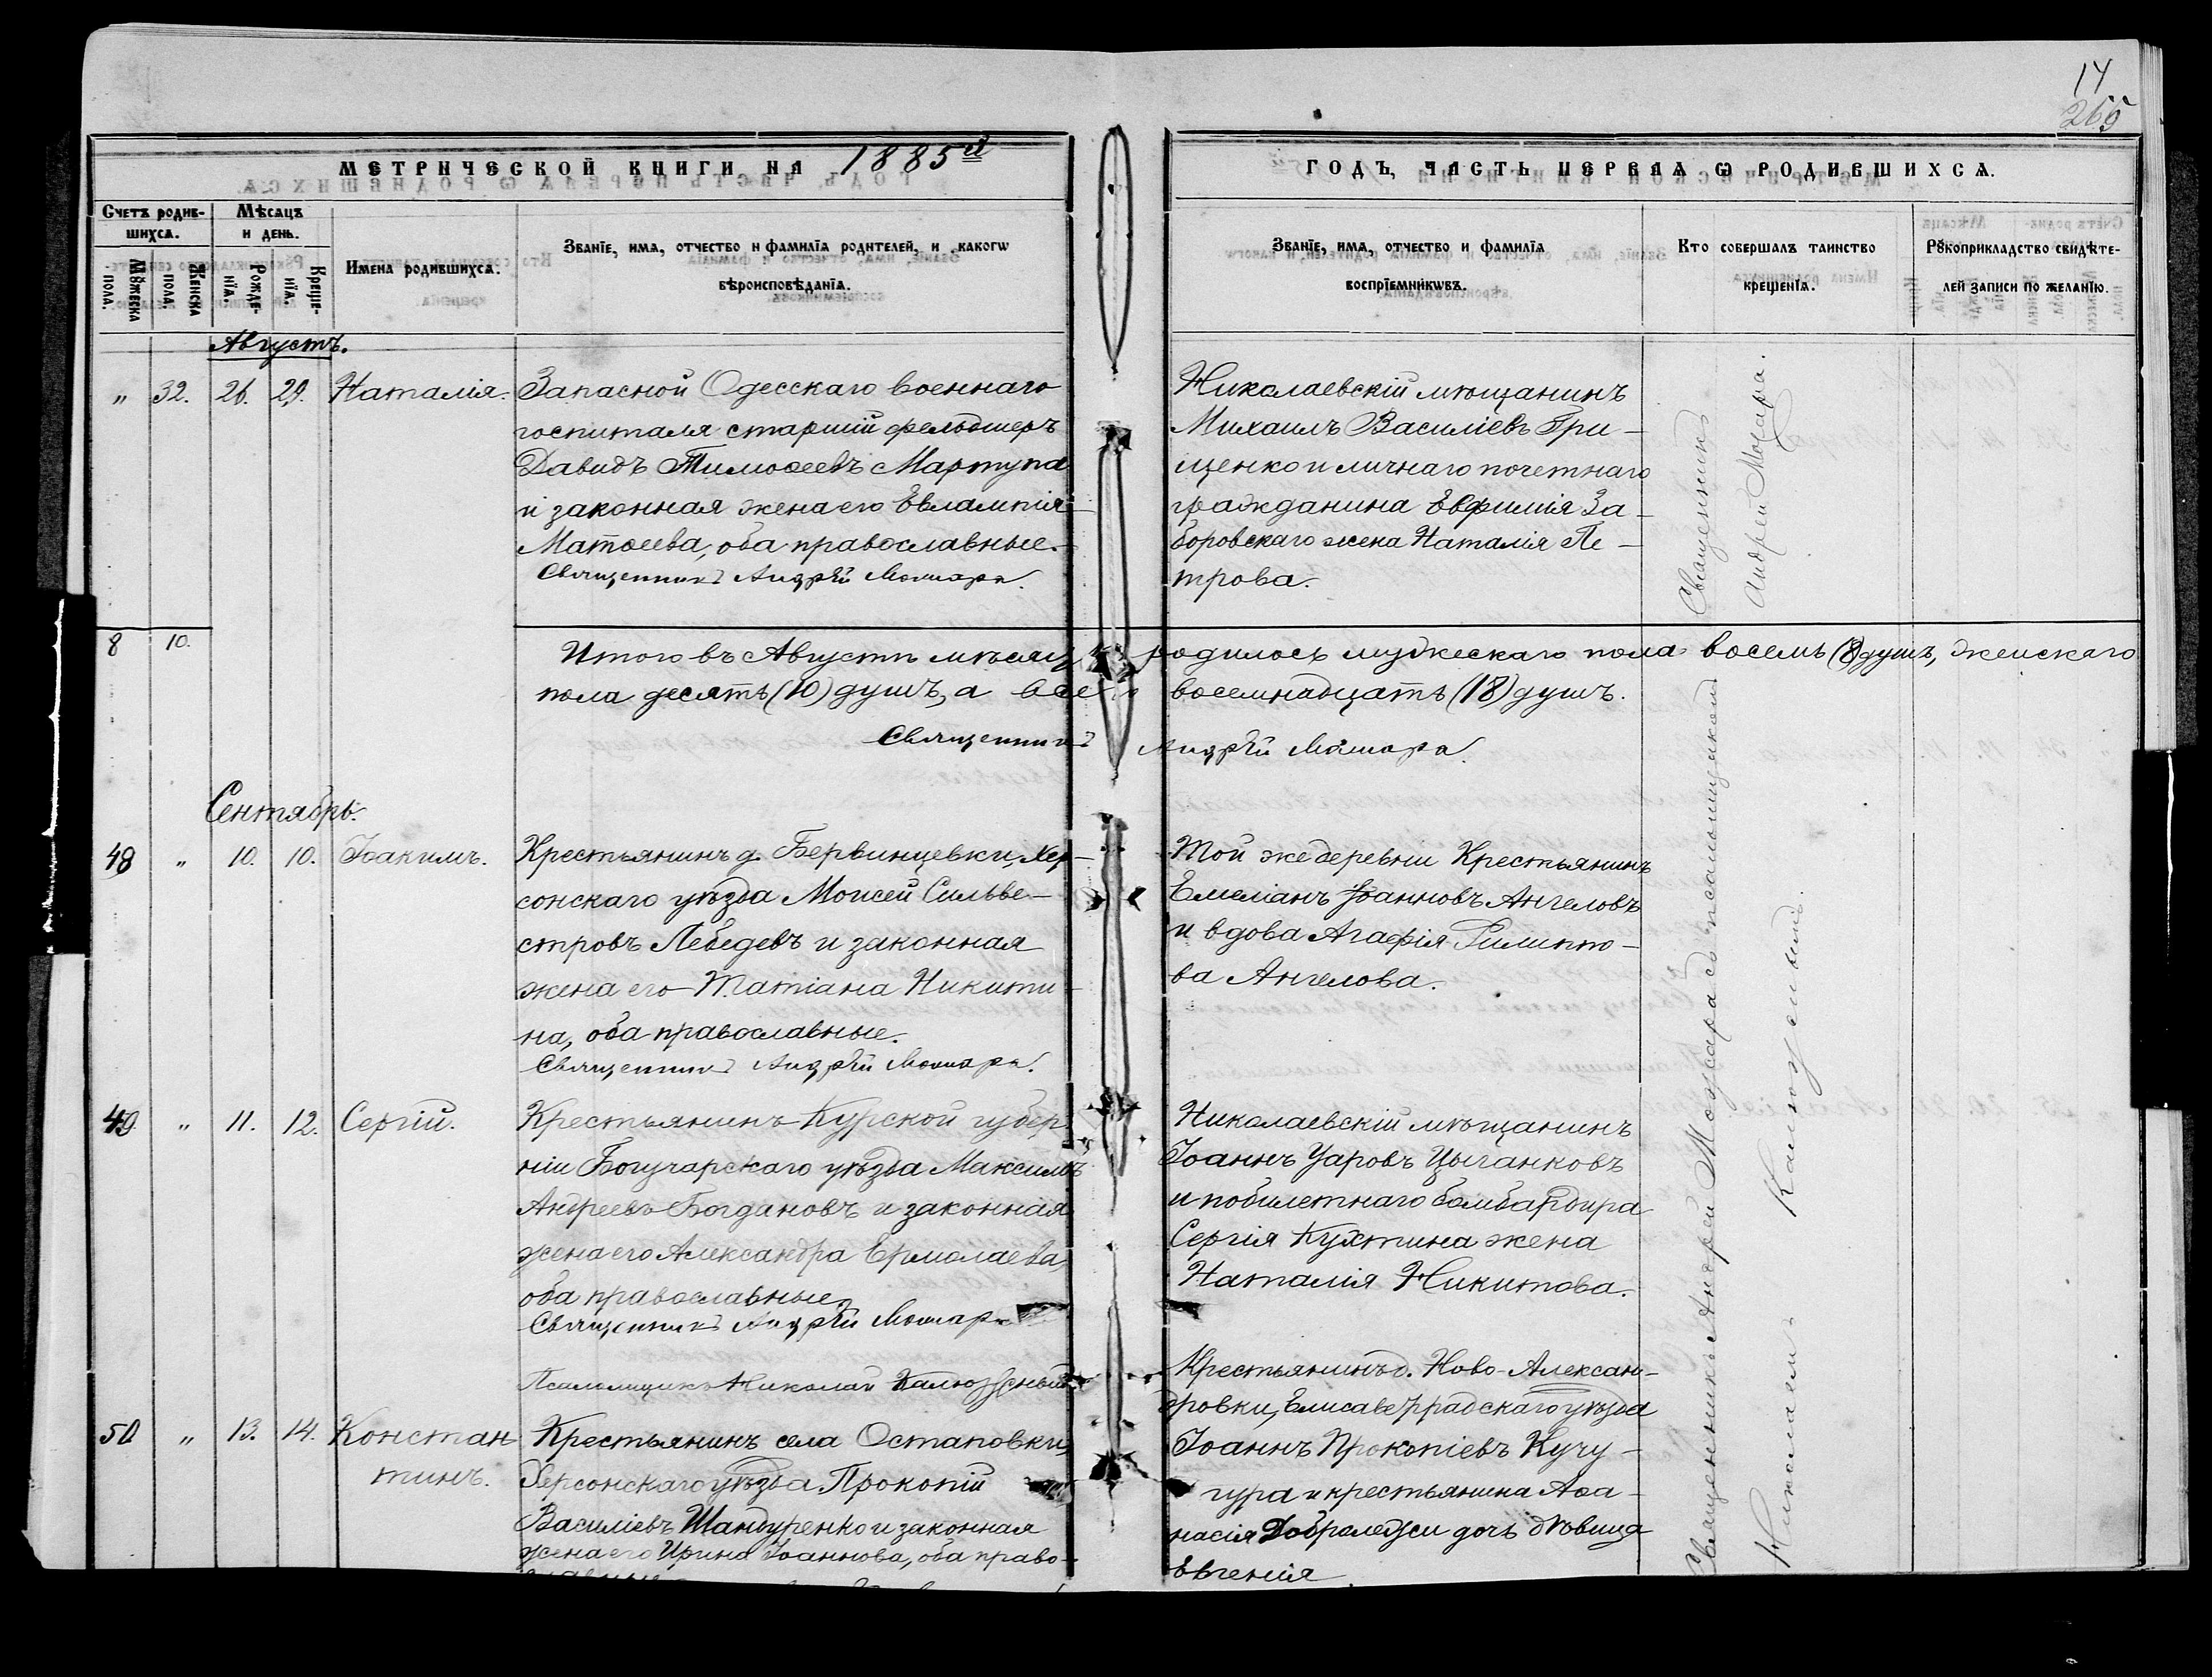 14
265
МЕТРИЧЕСКОЙ КНИГИ НА 1885й
ГОДЪ, ЧАСТЬ ПЕРВАЯ Ѡ РОДИВШИХСѦ.
Счетъ родив-
шихсѧ.
Мѣсѧцъ
и день.
Мꙋжеска
пола.
Женска
пола.
Рожде-
нїѧ.
Креще-
нїѧ.
Имена родившихсѧ.
Званїе, имѧ, отчество и фамилїѧ родителей, и какогѡ
вѣроисповѣданїѧ.
Званїе, имѧ, отчество и фамилїѧ
воспрїемникѡвъ.
Кто совершалъ таинство
крещенїѧ.
Рꙋкоприкладство свидѣте-
лей записи по желанїю.
Августъ.
" 32. 26. 29. Наталія.
Запасной Одесскаго военнаго
госпиталя старшій фельдшеръ
Давидъ Тимоѳеевъ Мартупа
и законная жена его Евлампія
Матѳеева, оба православные.
Священникъ Андрей
Николаевскій мѣщанинъ
Михаилъ Василіевъ Гри-
щенко и личнаго почетнаго
гражданина Евфимія За-
боровскаго жена Наталія Пе-
трова.
Священникъ
Андрей
8 10.
Итого въ Августѣ мѣсяцѣ родилось мужескаго пола восемь (8) душъ, женскаго
пола десять (10) душъ, а всего восемнадцать (18) душъ.
Священникъ Андрей
Сентябрь.
48 " 10. 10. Іоакимъ.
Крестьянинъ д. Бервинцевки, Хер-
сонскаго уѣзда Моисей Сильве-
стровъ Лебедевъ и законная
жена его Татіана Никити-
на, оба православные.
Священникъ Андрей
Той же деревни Крестьянинъ
Емеліанъ Іоанновъ Ангеловъ
и вдова Агафія Филиппо-
ва Ангелова.
49. " 11. 12. Сергій.
Крестьянинъ Курской губер-
ніи Богучарскаго уѣзда Максимъ
Андреевъ Богдановъ и законная
жена его Александра Ермолаева,
оба православные.
Священникъ Андрей
Псаломщикъ Николай
Николаевскій мѣщанинъ
Іоаннъ Уаровъ Цыганковъ
и побилетнаго бомбардира
Сергія Кухтина жена
Наталія Никитова.
50 " 13. 14. Констан
тинъ.
Крестьянинъ села Остаповки,
Херсонскаго уѣзда Прокопій
Василіевъ Шандуренко и законная
жена его Ирина Іоаннова, оба право-
Крестьянинъ д. Ново-Алексан-
дровки, Елисаветградскаго уѣзда
Іоаннъ Прокопіевъ Кучу-
гура и крестьянина Аѳа-
насія дочь дѣвица
Евгенія.
Священникъ Андрей съ псаломщикомъ
Николаемъ